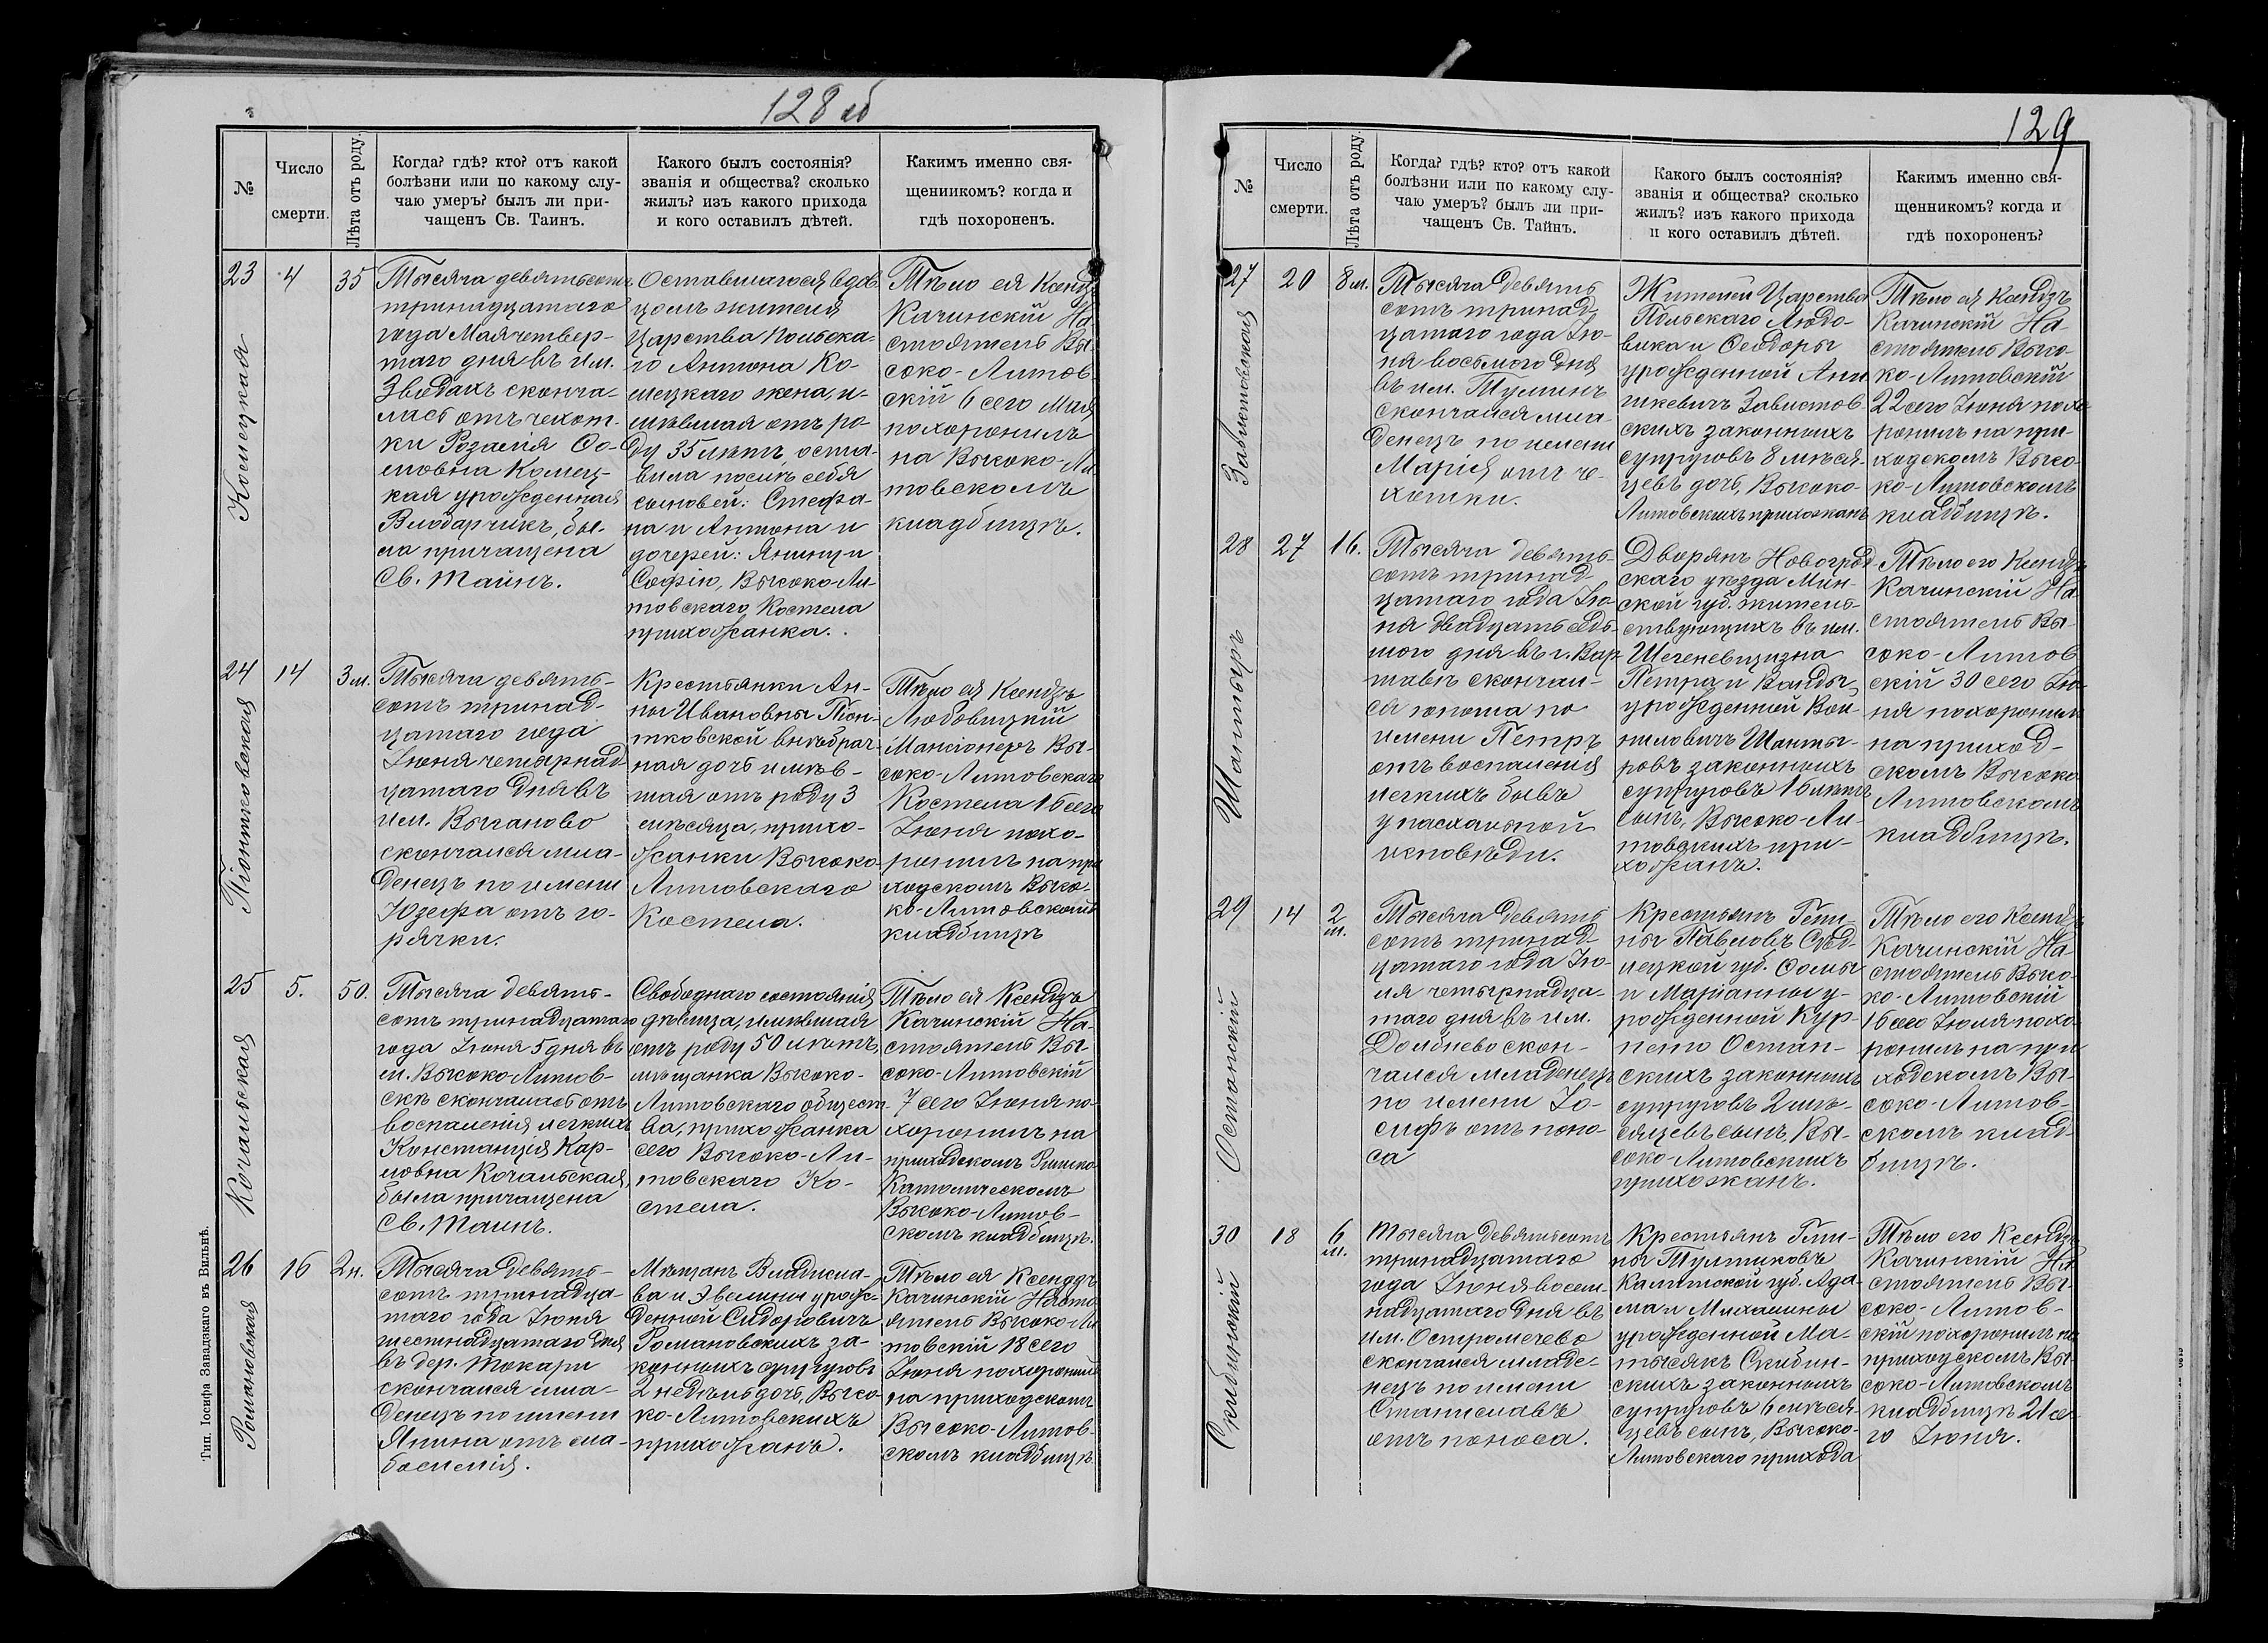 128 об
№
Число
смерти.
Лѣта отъ роду.
Когда? гдѣ? кто? отъ какой
болѣзни или по какому слу-
чаю умеръ? былъ ли при-
чащенъ Св. Таинъ.
Какого былъ состоянія?
званія и общества? сколько
жилъ? изъ какого прихода
и кого оставилъ дѣтей.
Какимъ именно свя-
щенникомъ? когда и
гдѣ похороненъ.
23
4
35
Тысяча девятьсотъ
тринадцатаго
года Мая четвер-
таго дня въ им.
Зводахъ сконча-
лась отъ чехот-
ки Розалія Ѳо-
мовна Комец-
кая урожденная
Влодарчикъ, бы-
ла причащена
Св. Таинъ.
Оставшагося вдов-
цомъ жителя
Царства Польска-
го Антона Ко-
мецкаго жена, и-
мѣвшая отъ ро-
ду 35 лѣтъ, оста-
вила послѣ себя
сыновей: Стефа-
на и Антона и
дочерей: Янину и
Софію, Высоко-Ли-
товскаго Костела
прихожанка.
Тѣло ея Ксендзъ
Качинскій На-
стоятель Вы-
соко-Литов-
скій 6 сего Мая
похоронилъ
на Высоко-Ли-
товскомъ
кладбищѣ.
Комецкая
24
14
3 м.
Тысяча девять-
сотъ тринад-
цатаго года
Іюня четырнад-
цатаго дня въ
им. Вычаново
скончался мла-
денецъ по имени
Юзефа отъ го-
рячки.
Крестьянки Ан-
ны Ивановны Піон-
тковской внѣбрач-
ная дочь имѣв-
шая отъ роду 3
мѣсяца, прихо-
жанки Высоко-
Литовскаго
Костела.
Тѣло ея Ксендзъ
Любовицкій
Мансіонеръ Вы-
соко-Литовскаго
Костела 16 сего
Іюня похо-
ронилъ на при
ходскомъ Высо-
ко-Литовскомъ
кладбищѣ
Піонтковская
25
5.
50.
Тысяча девять-
сотъ тринадцатаго
года Іюня 5 дня въ
м. Высоко-Литов-
скѣ скончалась отъ
воспаленія легкихъ
Констанція Кар-
ловна Кочальская,
была причащена
Св. Таинъ.
Свободнаго состоянія
дѣвица, имѣвшая
отъ роду 50 лѣтъ,
мѣщанка Высоко-
Литовскаго общест-
ва, прихожанка
сего Высоко-Ли-
товскаго Ко-
стела.
Тѣло ея Ксендзъ
Качинскій На-
стоятель Вы-
соко-Литовскій
7 сего Іюня по-
хоронилъ на
приходскомъ Римско
Католическомъ
Высоко-Литов-
скомъ кладбищѣ.
Кочальская
26
16
2 н.
Тысяча девять-
сотъ тринадца-
таго года Іюня
шестнадцатаго дня
въ дер. Токари
скончался мла-
денецъ по имени
Янина отъ сла-
босилія.
Мѣщанъ Владисла-
ва и Эвелины урож-
денной Сидоровичъ
Романовскихъ за-
конныхъ супруговъ
2 недѣль дочь, Высо-
ко-Литовскихъ
прихожанъ.
Тѣло ея Ксендзъ
Качинскій Насто
ятель Высоко-Ли
товскій 18 сего
Іюня похоронилъ
на приходскомъ
Высоко-Литов-
скомъ кладбищѣ
Романовская
Тип. Іосифа Завадзкаго въ Вильнѣ.
129
№
Число
смерти.
Лѣта отъ роду.
Когда? гдѣ? кто? отъ какой
болѣзни или по какому слу-
чаю умеръ? былъ ли при-
чащенъ Св. Тайнъ.
Какого былъ состоянія?
званія и общества? сколько
жилъ? изъ какого прихода
и кого оставилъ дѣтей.
Какимъ именно свя-
щенникомъ? когда и
гдѣ похороненъ?
27
20
8 м.
Тысяча девять
сотъ тринад-
цатаго года Ію-
ня восьмого дня
въ им. Туминъ
скончался мла-
денецъ по имени
Марія отъ че-
хотки.
Жителей Царства
Польскаго Людо-
вика и Ѳеодоры
урожденной Ани
шкевичъ Завистов
скихъ законныхъ
супруговъ 8 мѣся-
цевъ дочь, Высоко-
Литовскихъ прихожанъ
Тѣло ея Ксендзъ
Качинскій На-
стоятель Высо-
ко-Литовскій
22 сего Іюня похо
ронилъ на при-
ходскомъ Высо-
ко-Литовскомъ
кладбищѣ.
Завистовская
28
27
16.
Тысяча девять-
сотъ тринад-
цатаго года Ію-
ня двадцать седь-
мого дня въ г. Вар
шавѣ скончал-
ся юноша по
имени Петръ
отъ воспаленія
легкихъ бывъ
у пасхальной
исповѣди.
Дворянъ Новогруд
скаго уѣзда Мин-
ской губ. житель-
ствующихъ въ им.
Петра и Ванды,
урожденной Вой-
ниловичъ Шанты-
ровъ законныхъ
супруговъ 16 лѣтъ
сынъ, Высоко-Ли-
товскихъ при-
хожанъ.
Тѣло его Ксендзъ
Качинскій На
стоятель Вы-
соко-Литов
скій 30 сего Ію-
ня похоронилъ
на приход-
скомъ Высоко
Литовскомъ
кладбищѣ.
Шантыръ
29
14
2
м.
Тысяча девять
сотъ тринад-
цатаго года Ію-
ля четырнадца-
таго дня въ им.
Долбнево скон-
чался младенецъ
по имени Іо-
сифъ отъ поно-
са
Крестьянъ Гми-
ны Павловъ Сѣд-
лецкой губ. Ѳомы
и Маріанны у-
рожденной Кур-
пето Остан-
скихъ законныхъ
супруговъ 2 мѣ-
сяцевъ сынъ, Вы-
соко-Литовскихъ
прихожанъ.
Тѣло его Ксендзъ
Качинскій На-
стоятель Высо-
ко-Литовскій
16 сего Іюля похо-
ронилъ на при
ходскомъ Вы-
соко-Литов-
скомъ клад-
бищѣ.
30
18
6
м.
Тысяча девятьсотъ
тринадцатаго
года Іюня восем-
надцатаго дня въ
им. Остромечево
скончался младе-
нецъ по имени
Станиславъ
отъ поноса.
Крестьянъ Гми-
ны Тулишковъ
Калишской губ. Ада-
ма и Михалины
урожденной Ма-
тысякъ Скибин-
скихъ законныхъ
супруговъ 6 мѣся-
цевъ сынъ, Высоко-
Литовскаго прихода
Тѣло его Ксендзъ
Качинскій На
стоятель Вы-
соко-Литов-
скій похоронилъ на
приходскомъ Вы-
соко-Литовскомъ
кладбищѣ 21 се-
го Іюня.
Скибинскій